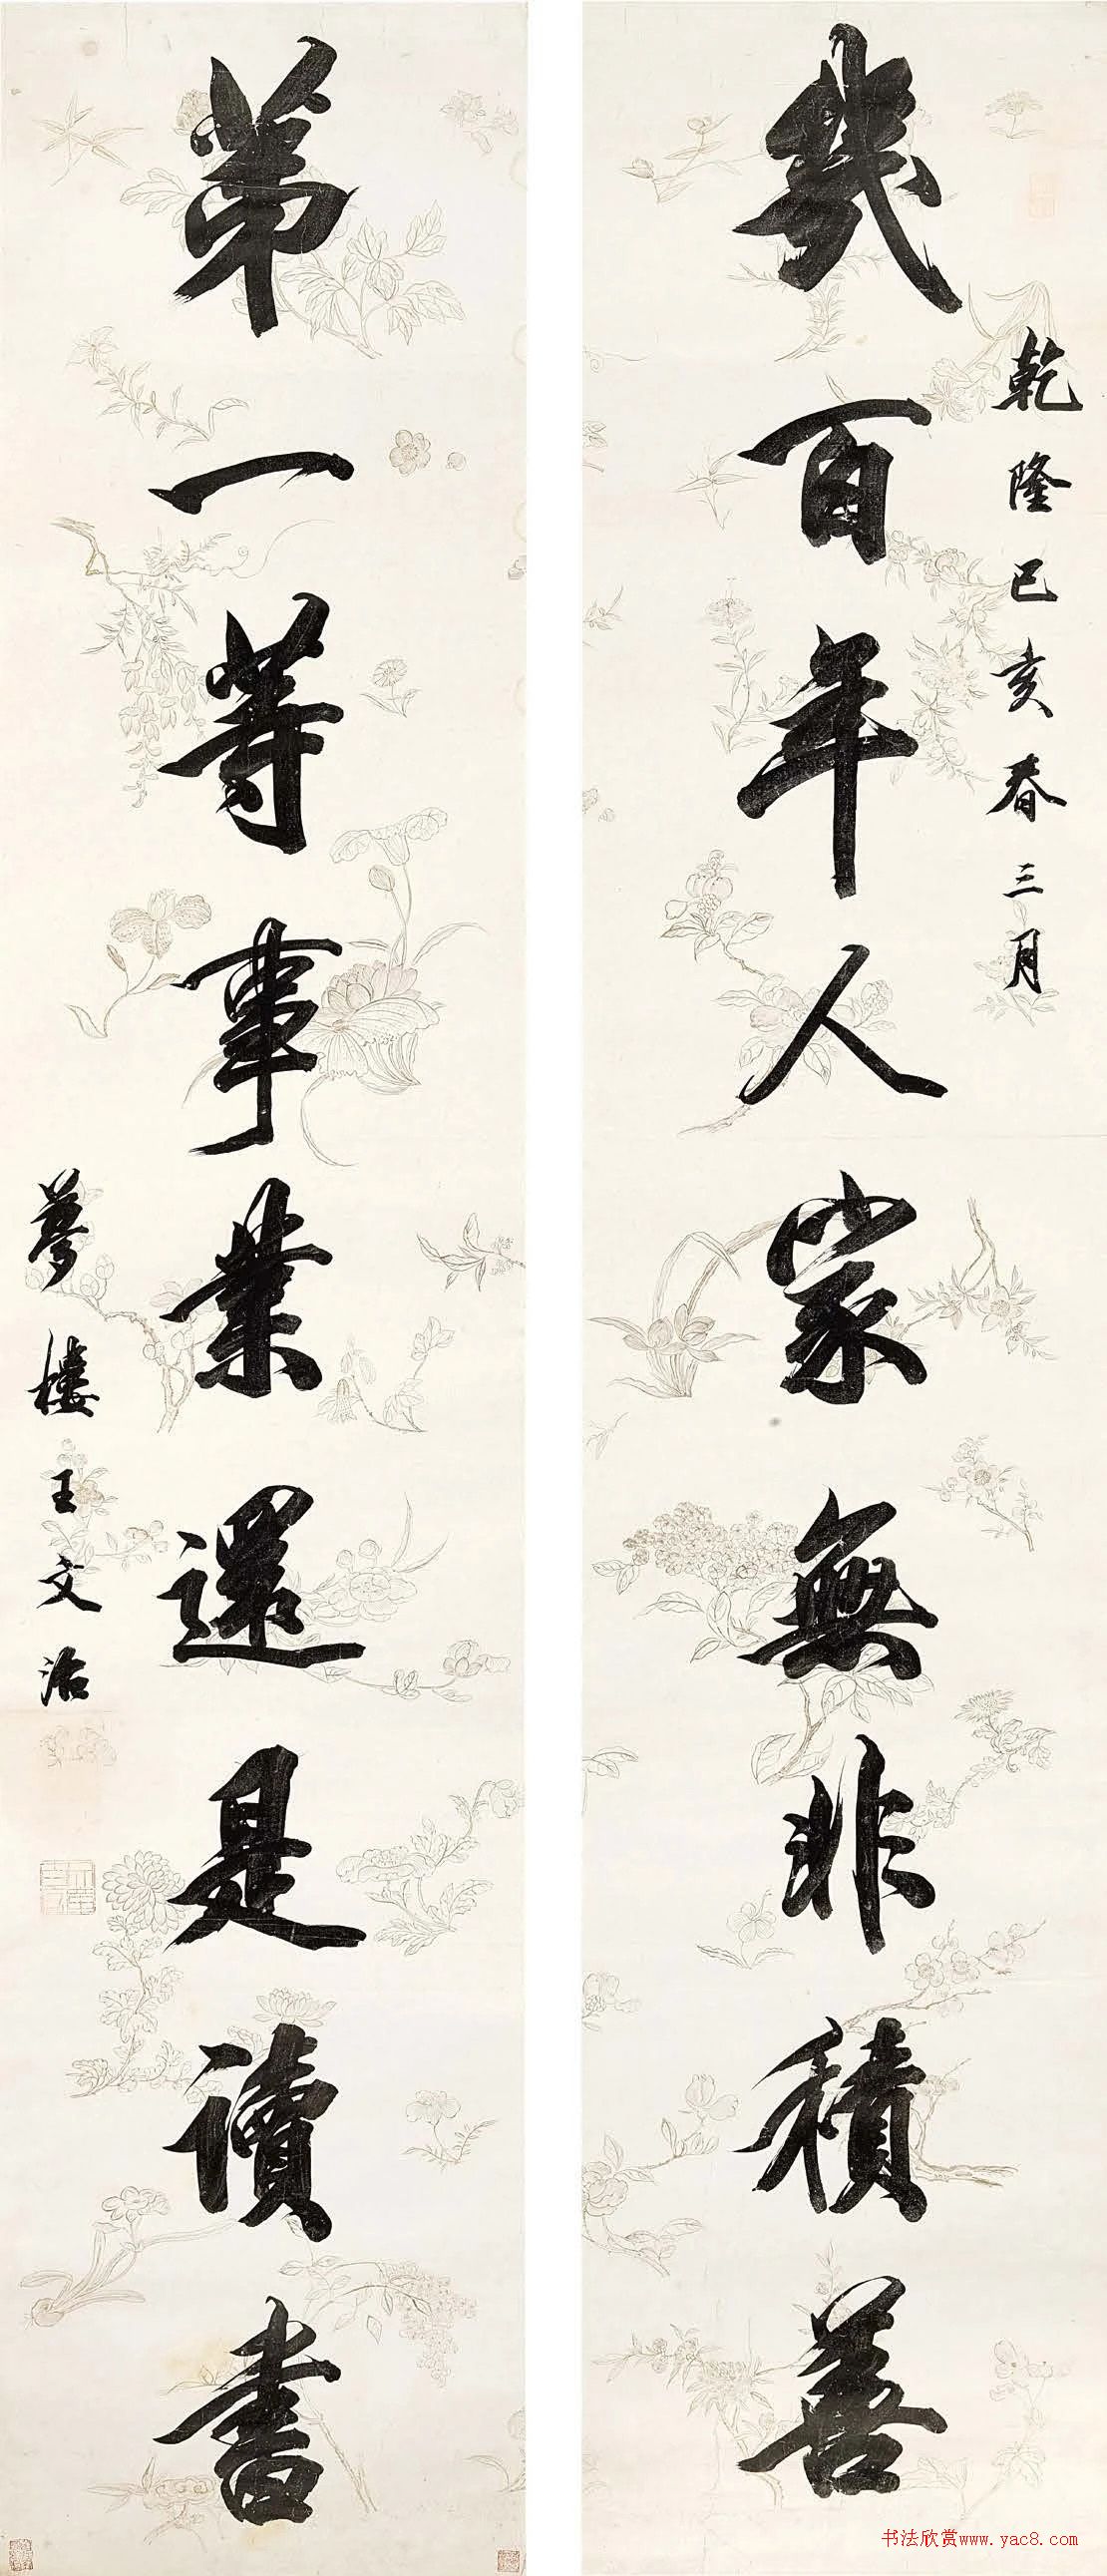 乾隆己亥春三月
幾百年人家無非積善
第一等事業還是讀書
夢樓王文治
书法欣赏www.yac8.com